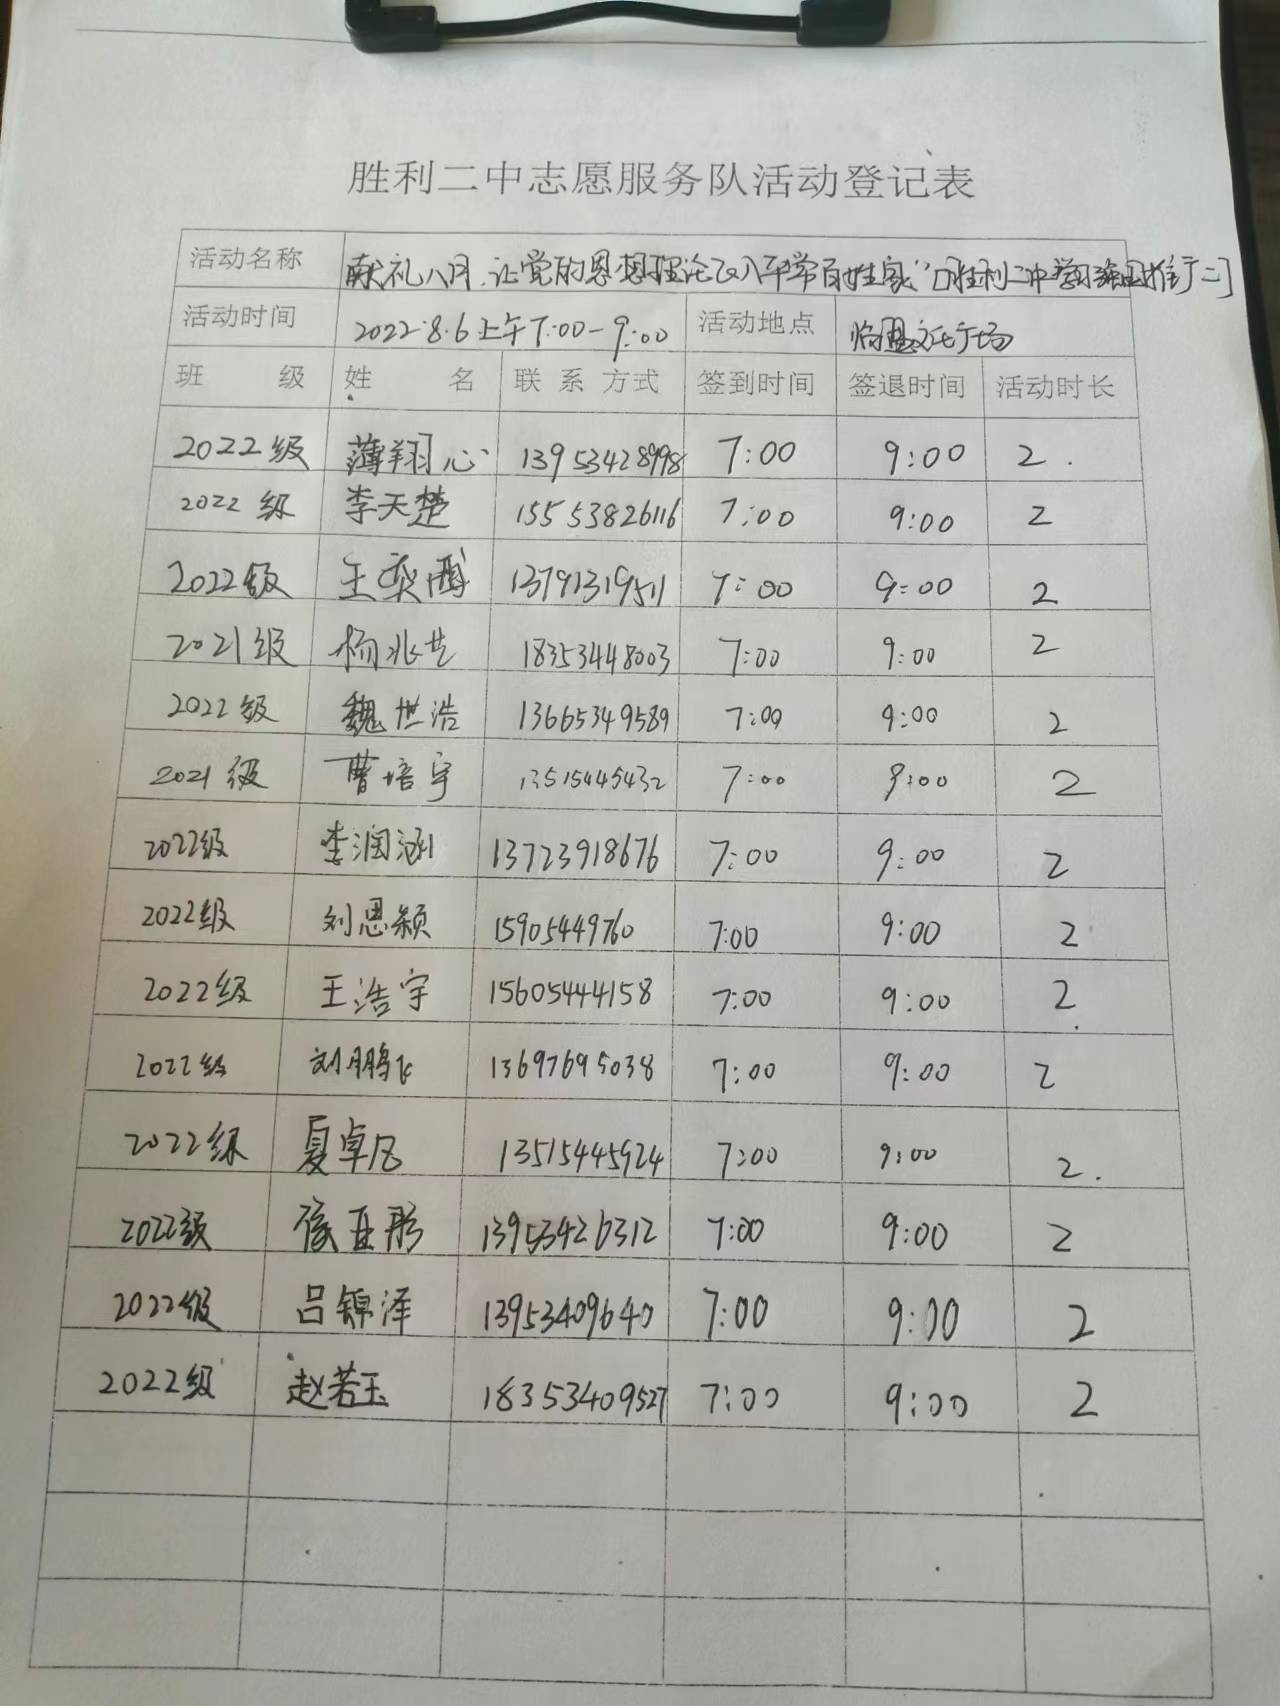 胜利二中志愿服务队活动登记表
活动名称 献礼八月.让党的思想理论飞入平常百姓家"[胜利二中学习强国推广二]
活动时间 2022.8.6上午7:00-9:00 活动地点 文化广场
班级 姓名 联系方式 签到时间 签退时间 活动时长
2022级 薄翔心 13953428998 7:00 9:00 2.
2022级 李天楚 15553826116 7:00 9:00 2
2022级 王奕 13791319511 7:00 9:00 2
2021级 杨兆艺 18353448003 7:00 9:00 2
2022级 魏世浩 13665349589 7:00 9:00 2
2021级 曹培宇 13515445432 7:00 9:00 2
2022级 李润涵 13723918676 7:00 9:00 2
2022级 刘思颖 15905449760 7:00 9:00 2
2022级 王浩宇 15605444158 7:00 9:00 2
2022级 刘鹏飞 13697695038 7:00 9:00 2
2022级 夏卓凡 13515445924 7:00 9:00 2.
2022级 亚彤 13953426312 7:00 9:00 2
2022级 吕锦泽 13953409640 7:00 9:00 2
2022级 赵若玉 18353409527 7:00 9:00 2